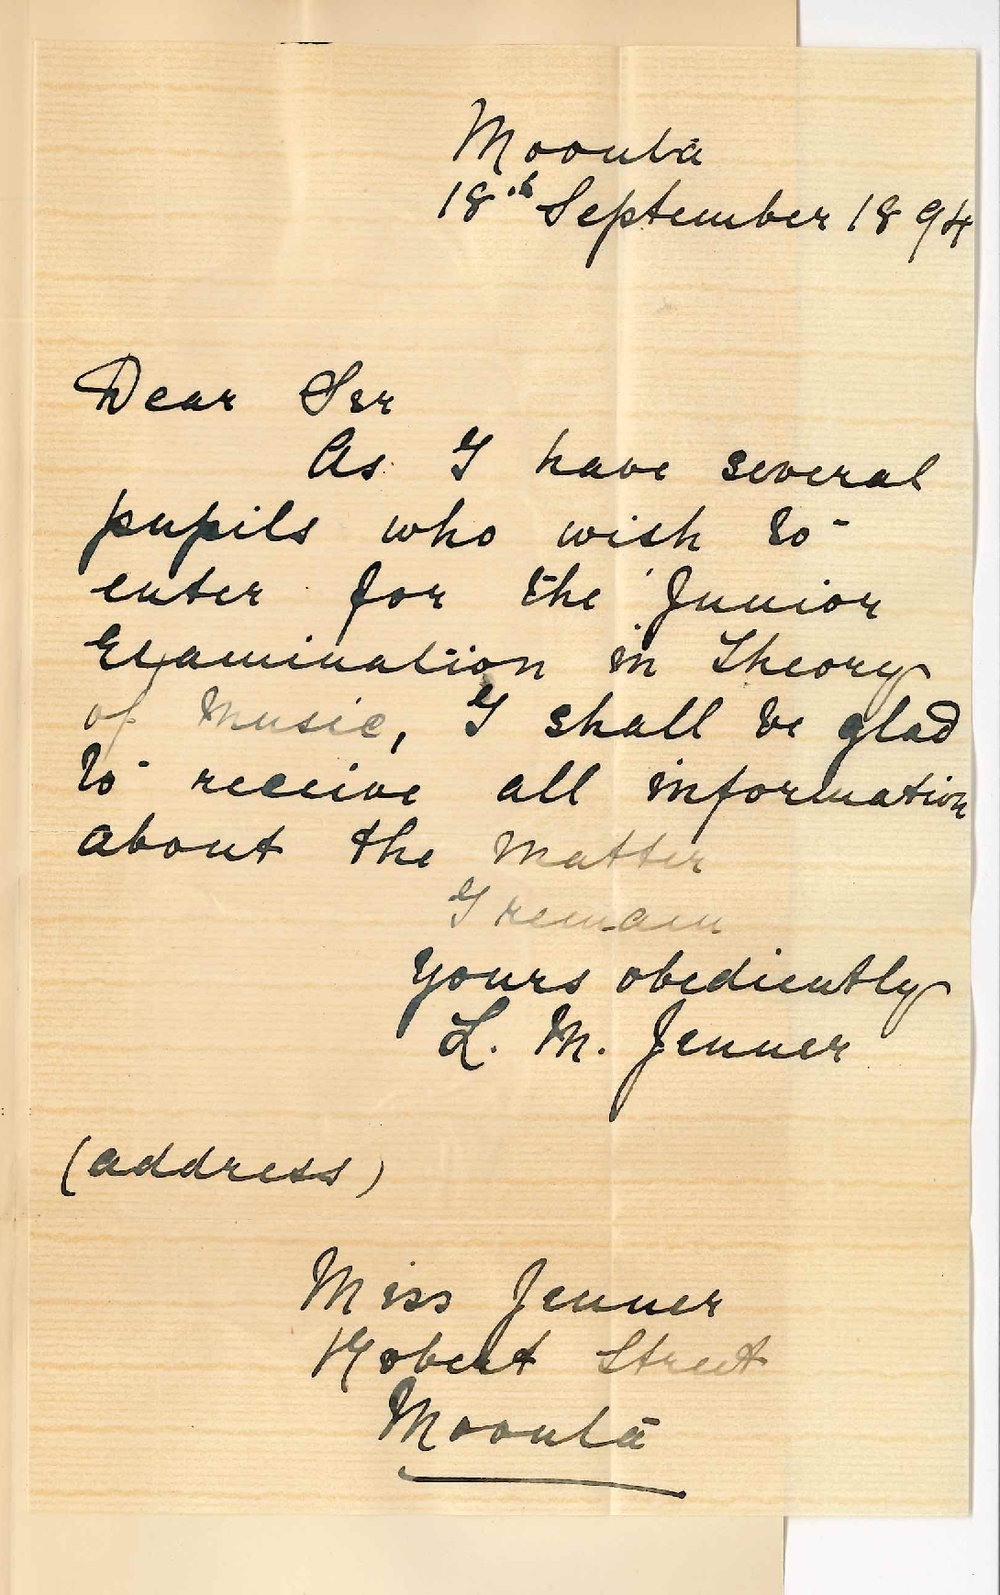 Moonta
18th September 1894
Dear Sir
As I have several
pupils who wish to
enter for the Junior
Examination in Theory
of Music, I shall be glad
to receive all information
about the matter
I remain
Yours obediently
L. M. Jenner
(address)
Miss Jenner
Robert Street
Moonta